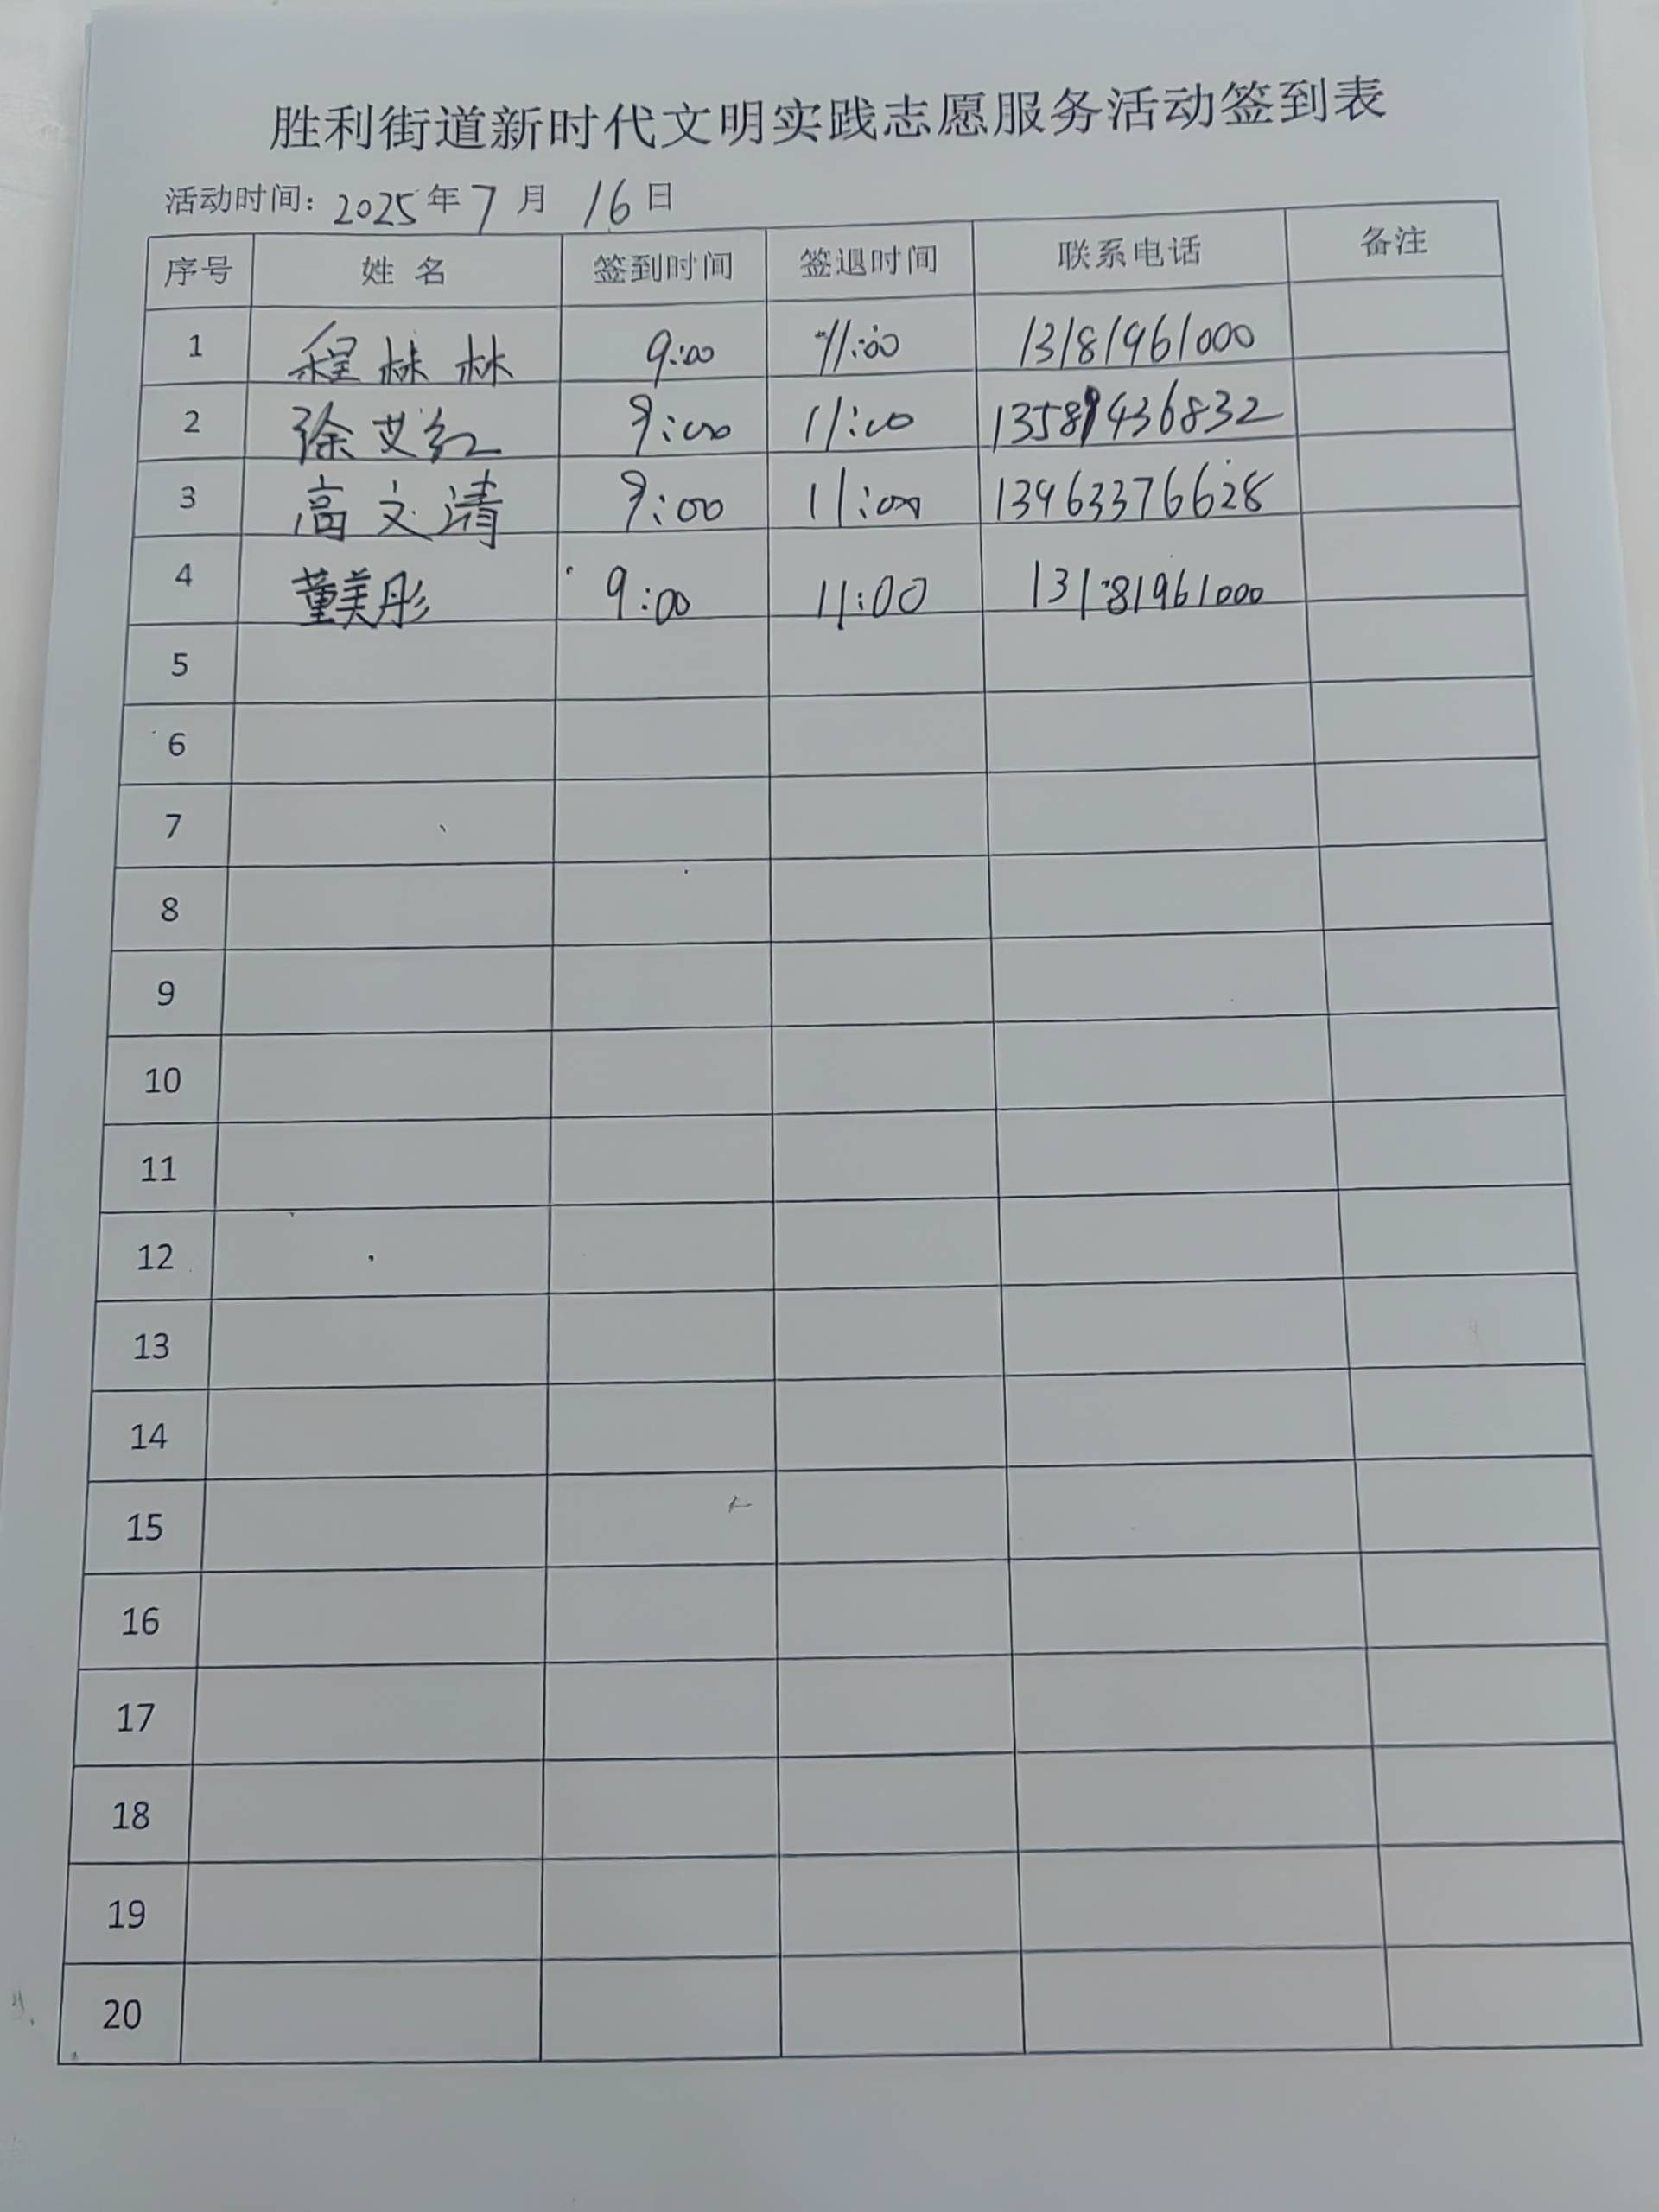 胜利街道新时代文明实践志愿服务活动签到表
活动时间：2025年7月16日
序号 姓名 签到时间 签退时间 联系电话 备注
1 程林林 9:00 11:00 13181961000
2 徐艾红 9:00 11:00 13589436832
3 高文清 9:00 11:00 13963376628
4 董美彤 9:00 11:00 13181961000
5
6
7
8
9
10
11
12
13
14
15
16
17
18
19
20